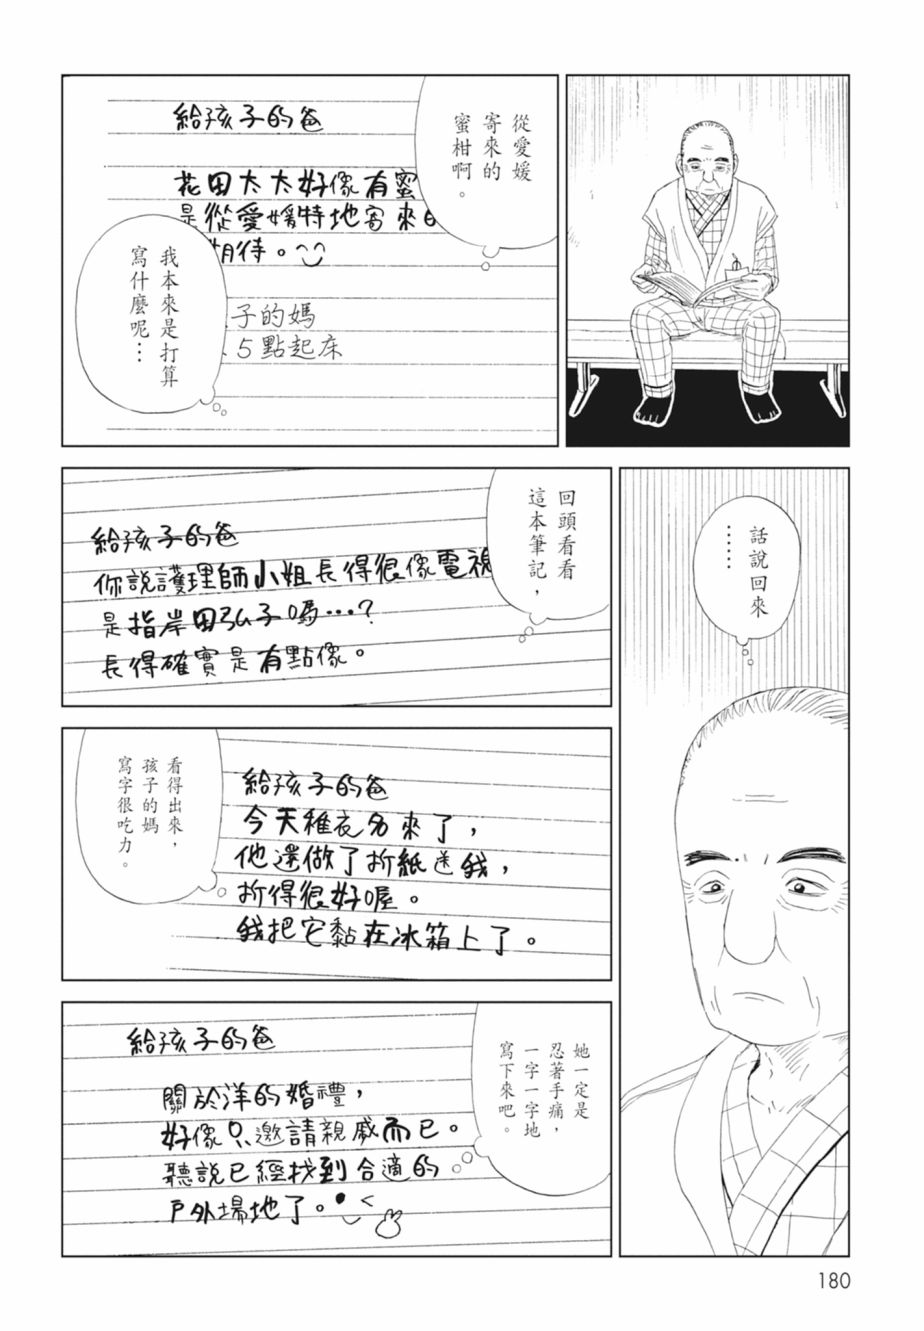 從愛媛
寄來的
蜜柑啊。
給孩子的爸
花田太太好像有蜜
是從愛媛特地寄來的
期待。
子的媽
5點起床
我本來是打算
寫什麼呢…
話說回來
……
回頭看看
這本筆記，
給孩子的爸
你說護理師小姐長得很像電視
是指岸田弘子嗎…?
長得確實是有點像。
給孩子的爸
今天稚衣名來了，
他還做了折紙送我，
折得很好喔。
我把它黏在冰箱上了。
看得出來，
孩子的媽
寫字很吃力。
給孩子的爸
關於洋的婚禮，
好像只邀請親戚而已。
聽說已經找到合適的
戶外場地了。
她一定是
忍著手痛，
一字一字地
寫下來吧。
180